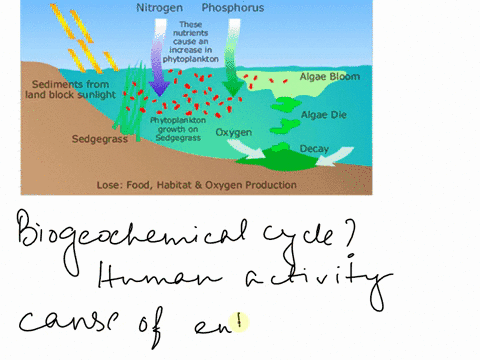 Nitrogen Phosphorus
These
nutrients
cause an
increase in
phytoplankton
Sediments from
land block sunlight
Algae Bloom
Algae Die
Phytoplankton
growth on
Sedgegrass
Oxygen
Sedgegrass
Decay
Lose: Food, Habitat & Oxygen Production
Biogeochemical cycle?
Human activity
cause of